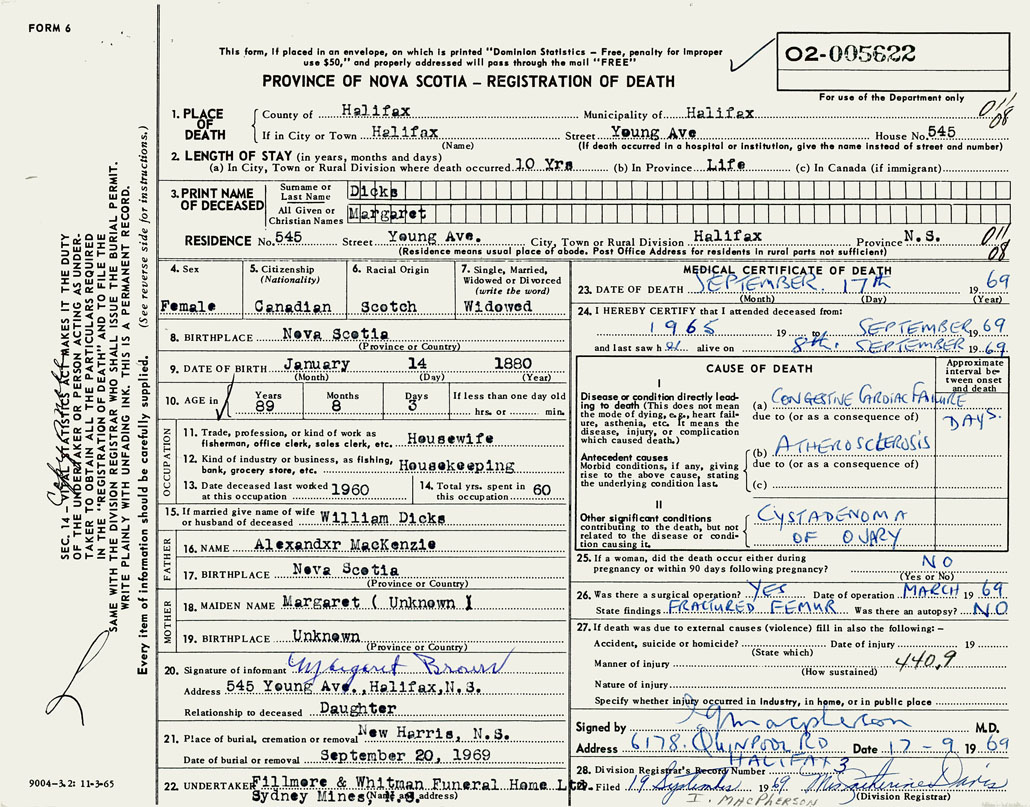 FORM 6
This form, if placed in an envelope, on which is printed "Dominion Statistics – Free, penalty for improper
use $50," and properly addressed will pass through the mail "FREE"
PROVINCE OF NOVA SCOTIA – REGISTRATION OF DEATH
02-005622
For use of the Department only
011
08
1. PLACE OF DEATH
County of Halifax Municipality of Halifax
If in City or Town Halifax Street Young Ave House No. 545
(Name) (If death occurred in a hospital or institution, give the name instead of street and number)
2. LENGTH OF STAY (in years, months and days)
(a) In City, Town or Rural Division where death occurred 10 Yrs (b) In Province Life (c) In Canada (if immigrant)
3. PRINT NAME OF DECEASED
Surname or Last Name Dicks
All Given or Christian Names Margaret
RESIDENCE No. 545 Street Young Ave. City, Town or Rural Division Halifax Province N.S.
(Residence means usual place of abode. Post Office Address for residents in rural parts not sufficient)
011
08
4. Sex
Female
5. Citizenship
(Nationality)
Canadian
6. Racial Origin
Scotch
7. Single, Married,
Widowed or Divorced
(write the word)
Widowed
8. BIRTHPLACE Nova Scotia
(Province or Country)
9. DATE OF BIRTH January 14 1880
(Month) (Day) (Year)
10. AGE in
Years Months Days If less than one day old
89 8 3 hrs. or min.
OCCUPATION
11. Trade, profession, or kind of work as
fisherman, office clerk, sales clerk, etc. Housewife
12. Kind of industry or business, as fishing,
bank, grocery store, etc. Housekeeping
13. Date deceased last worked
at this occupation 1960
14. Total yrs. spent in
this occupation 60
15. If married give name of wife
or husband of deceased William Dicks
FATHER
16. NAME Alexandxr MacKenzie
17. BIRTHPLACE Nova Scotia
(Province or Country)
MOTHER
18. MAIDEN NAME Margaret ( Unknown )
19. BIRTHPLACE Unknown
(Province or Country)
20. Signature of informant Margaret Brown
Address 545 Young Ave., Halifax, N.S.
Relationship to deceased Daughter
21. Place of burial, cremation or removal New Harris, N.S.
Date of burial or removal September 20, 1969
22. UNDERTAKER Fillmore & Whitman Funeral Home Ltd.
(Name and address)
Sydney Mines, N.S.
MEDICAL CERTIFICATE OF DEATH
23. DATE OF DEATH SEPTEMBER 17th 1969
(Month) (Day) (Year)
24. I HEREBY CERTIFY that I attended deceased from:
1965 19 to SEPTEMBER 1969
and last saw her alive on 8th. SEPTEMBER 1969.
CAUSE OF DEATH
Approximate
interval be-
tween onset
and death
I
Disease or condition directly lead-
ing to death (This does not mean
the mode of dying, e.g., heart fail-
ure, asthenia, etc. It means the
disease, injury, or complication
which caused death.)
(a) CONGESTIVE CARDIAC FAILURE
due to (or as a consequence of) DAYS.
Antecedent causes
Morbid conditions, if any, giving
rise to the above cause, stating
the underlying condition last.
(b) ATHEROSCLEROSIS
due to (or as a consequence of)
(c)
II
Other significant conditions
contributing to the death, but not
related to the disease or condi-
tion causing it.
CYSTADENOMA
OF OVARY
25. If a woman, did the death occur either during
pregnancy or within 90 days following pregnancy? NO
(Yes or No)
26. Was there a surgical operation? YES Date of operation MARCH 1969.
State findings FRACTURED FEMUR Was there an autopsy? NO
27. If death was due to external causes (violence) fill in also the following: –
Accident, suicide or homicide? Date of injury 19
(State which)
Manner of injury 440.9
(How sustained)
Nature of injury
Specify whether injury occurred in industry, in home, or in public place
Signed by I G Macpherson M.D.
Address 6178. QUINPOOL RD Date 17-9 1969
HALIFAX
28. Division Registrar's Record Number 3
29. Filed 19 September 1969. Davis
(Division Registrar)
I. MACPHERSON
SEC. 14 – VITAL STATISTICS ACT MAKES IT THE DUTY
OF THE UNDERTAKER OR PERSON ACTING AS UNDER-
TAKER TO OBTAIN ALL THE PARTICULARS REQUIRED
IN THE "REGISTRATION OF DEATH" AND TO FILE THE
SAME WITH THE DIVISION REGISTRAR WHO SHALL ISSUE THE BURIAL PERMIT.
WRITE PLAINLY WITH UNFADING INK. THIS IS A PERMANENT RECORD.
Every item of information should be carefully supplied. (See reverse side for instructions.)
9004-3.2: 11-3-65